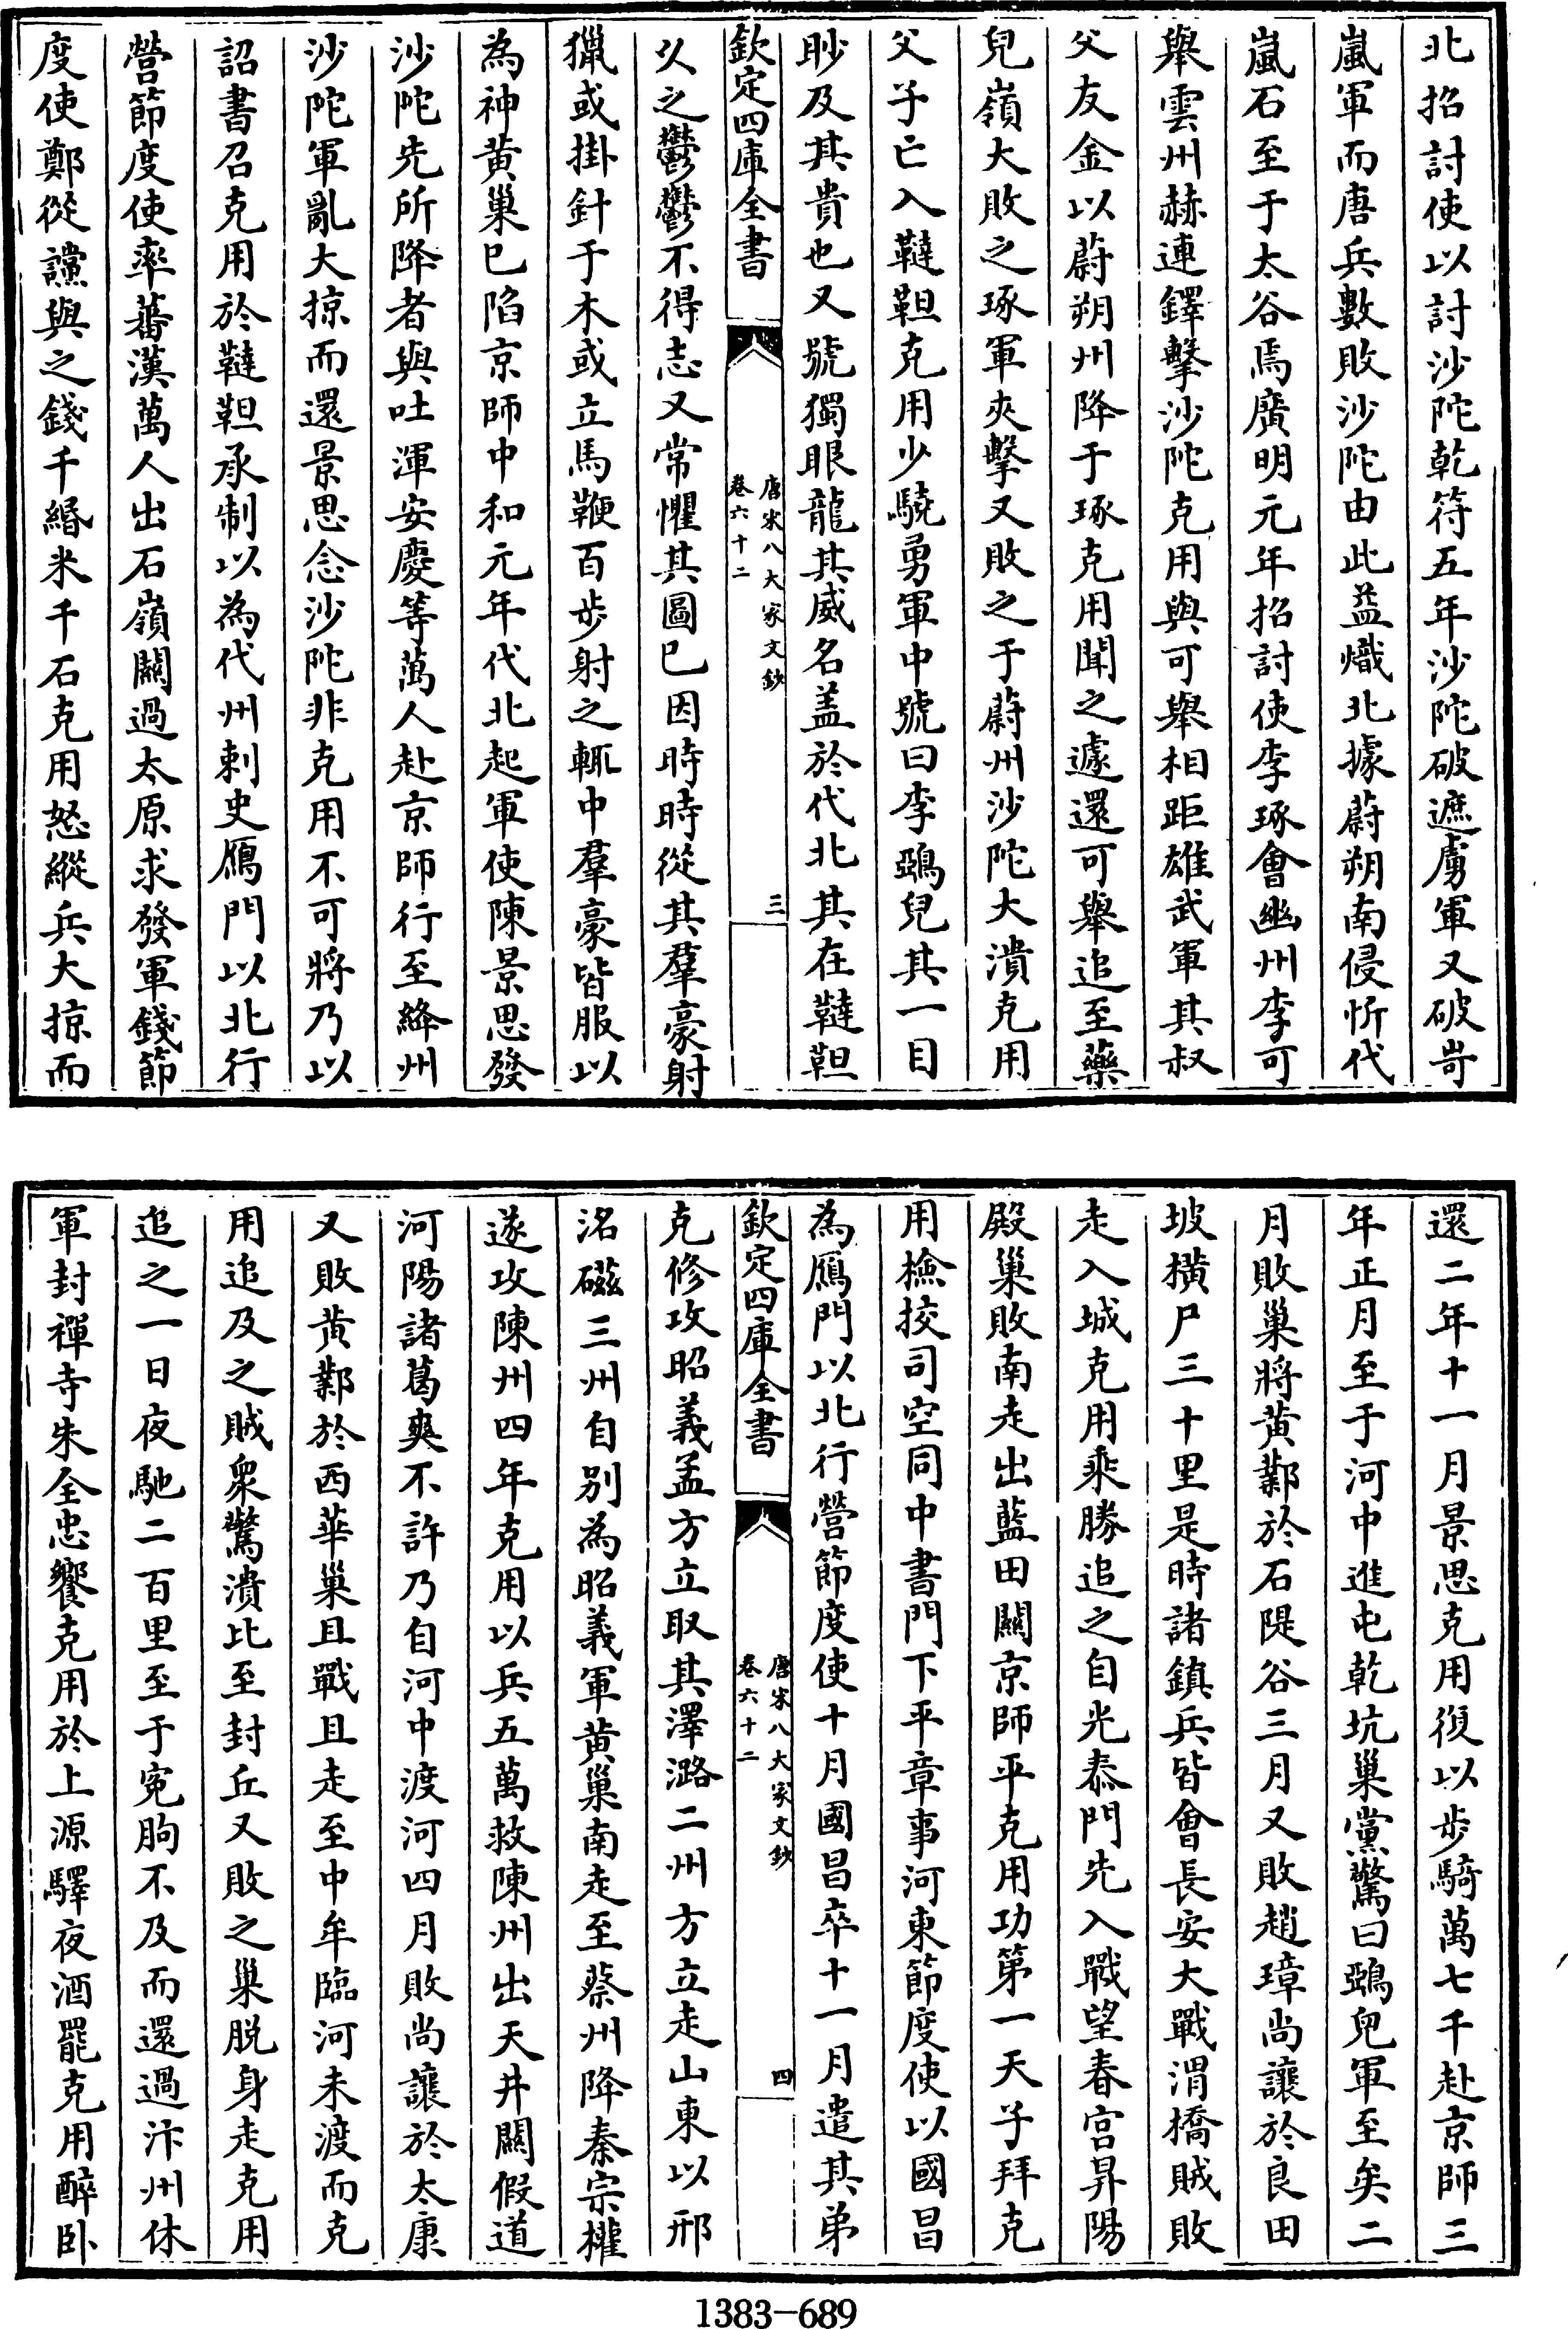 北招討使以討沙陀乾符五年沙陀破遮虜軍又破岢
嵐軍而唐兵數敗沙陀由此益熾北據蔚朔南侵忻代
嵐石至于太谷焉廣明元年招討使李琢會幽州李可
舉雲州赫連鐸擊沙陀克用與可舉相距雄武軍其叔
父友金以蔚朔州降于琢克用聞之遽還可舉追至藥
兒嶺大敗之琢軍夾擊又敗之于蔚州沙陀大潰克用
父子亡入韃靼克用少驍勇軍中號曰李鵶兒其一目
眇及其貴也又號獨眼龍其威名盖於代北其在韃靼
欽定四庫全書
唐宋八大家文鈔
卷六十二
三
乆之鬱鬱不得志又常懼其圖已因時時從其羣豪射
獵或掛針于木或立馬鞭百步射之輒中羣豪皆服以
為神黄巢已陷京師中和元年代北起軍使陳景思發
沙陀先所降者與吐渾安慶等萬人赴京師行至絳州
沙陀軍亂大掠而還景思念沙陀非克用不可將乃以
詔書召克用於韃靼承制以為代州刺史鴈門以北行
營節度使率蕃漢萬人出石嶺關過太原求發軍錢節
度使鄭從讜與之錢千緡米千石克用怒縱兵大掠而
還二年十一月景思克用復以步騎萬七千赴京師三
年正月至于河中進屯乾坑巢黨驚曰鵶兒軍至矣二
月敗巢將黄鄴於石隄谷三月又敗趙璋尚讓於良田
坡横尸三十里是時諸鎮兵皆會長安大戰渭橋賊敗
走入城克用乘勝追之自光泰門先入戰望春宮昇陽
殿巢敗南走出藍田關京師平克用功第一天子拜克
用檢挍司空同中書門下平章事河東節度使以國昌
為鴈門以北行營節度使十月國昌卒十一月遣其弟
欽定四庫全書
唐宋八大家文鈔
卷六十二
四
克修攻昭義孟方立取其澤潞二州方立走山東以邢
洺磁三州自别為昭義軍黄巢南走至蔡州降秦宗權
遂攻陳州四年克用以兵五萬救陳州出天井關假道
河陽諸葛爽不許乃自河中渡河四月敗尚讓於太康
又敗黄鄴於西華巢且戰且走至中牟臨河未渡而克
用追及之賊衆驚潰比至封丘又敗之巢脱身走克用
追之一日夜馳二百里至于寃朐不及而還過汴州休
軍封禪寺朱全忠饗克用於上源驛夜酒罷克用醉卧
1383-689